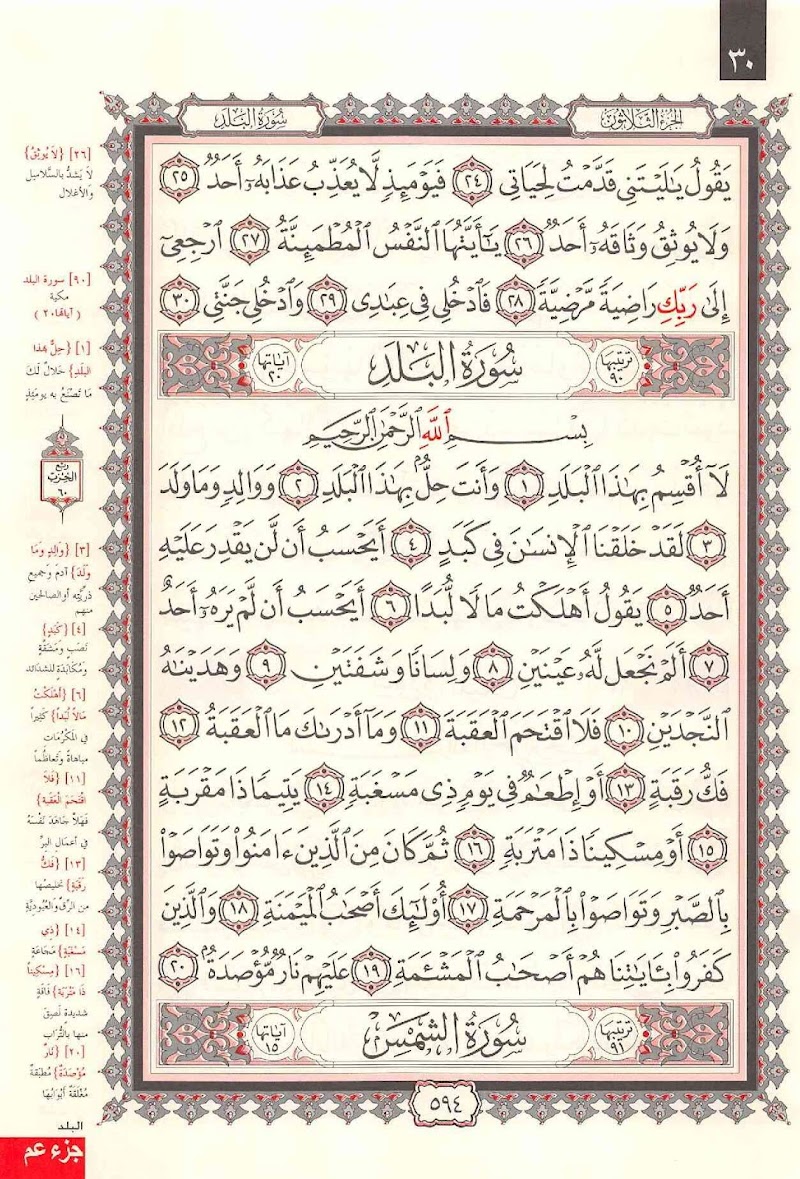 ٣٠
الجزء الثلاثون
سورة البلد
يَقُولُ يَٰلَيْتَنِى قَدَّمْتُ لِحَيَاتِى ٢٤ فَيَوْمَئِذٍ لَّا يُعَذِّبُ عَذَابَهُۥٓ أَحَدٌ ٢٥
وَلَا يُوثِقُ وَثَاقَهُۥٓ أَحَدٌ ٢٦ يَٰٓأَيَّتُهَا ٱلنَّفْسُ ٱلْمُطْمَئِنَّةُ ٢٧ ٱرْجِعِىٓ
إِلَىٰ رَبِّكِ رَاضِيَةً مَّرْضِيَّةً ٢٨ فَٱدْخُلِى فِى عِبَٰدِى ٢٩ وَٱدْخُلِى جَنَّتِى ٣٠
ترتيبها ٩٠ سُورَةُ البَلَدِ آياتها ٢٠
بِسْمِ ٱللَّهِ ٱلرَّحْمَٰنِ ٱلرَّحِيمِ
لَآ أُقْسِمُ بِهَٰذَا ٱلْبَلَدِ ١ وَأَنتَ حِلٌّۢ بِهَٰذَا ٱلْبَلَدِ ٢ وَوَالِدٍ وَمَا وَلَدَ
٣ لَقَدْ خَلَقْنَا ٱلْإِنسَٰنَ فِى كَبَدٍ ٤ أَيَحْسَبُ أَن لَّن يَقْدِرَ عَلَيْهِ
أَحَدٌ ٥ يَقُولُ أَهْلَكْتُ مَالًا لُّبَدًا ٦ أَيَحْسَبُ أَن لَّمْ يَرَهُۥٓ أَحَدٌ
٧ أَلَمْ نَجْعَل لَّهُۥ عَيْنَيْنِ ٨ وَلِسَانًا وَشَفَتَيْنِ ٩ وَهَدَيْنَٰهُ
ٱلنَّجْدَيْنِ ١٠ فَلَا ٱقْتَحَمَ ٱلْعَقَبَةَ ١١ وَمَآ أَدْرَىٰكَ مَا ٱلْعَقَبَةُ ١٢
فَكُّ رَقَبَةٍ ١٣ أَوْ إِطْعَٰمٌ فِى يَوْمٍ ذِى مَسْغَبَةٍ ١٤ يَتِيمًا ذَا مَقْرَبَةٍ
١٥ أَوْ مِسْكِينًا ذَا مَتْرَبَةٍ ١٦ ثُمَّ كَانَ مِنَ ٱلَّذِينَ ءَامَنُوا۟ وَتَوَاصَوْا۟
بِٱلصَّبْرِ وَتَوَاصَوْا۟ بِٱلْمَرْحَمَةِ ١٧ أُو۟لَٰٓئِكَ أَصْحَٰبُ ٱلْمَيْمَنَةِ ١٨ وَٱلَّذِينَ
كَفَرُوا۟ بِـَٔايَٰتِنَا هُمْ أَصْحَٰبُ ٱلْمَشْـَٔمَةِ ١٩ عَلَيْهِمْ نَارٌ مُّؤْصَدَةٌۢ ٢٠
ترتيبها ٩١ سُورَةُ الشَّمْسِ آياتها ١٥
٥٩٤
[٢٦] {لَا يُوثِقُ}
لَا يَشدُّ بالسلاسِل
والأغلال
[٩٠] سورة البلد
مكية
(آياتها ٢٠)
[١] {حِلٌّ بهذا
البلدِ} حَلالٌ لَكَ
مَا تَصْنَعُ به يومَئِذٍ
ربع
الحزب
٦٠
[٣] {وَالِدٍ وَمَا
وَلَدَ} آدمَ وَجميعِ
ذريَّتِه أو الصالحين
منهم
[٤] {كَبَدٍ}
نَصَبٍ وَمَشَقَّةٍ
ومُكابَدَةٍ للشدائد
[٦] {أَهْلَكْتُ
مَالاً لُبَداً} كثيراً
في المَكْرُمَات
مباهاةً وتَعاظُماً
[١١] {فَلاَ
اقتَحَمَ العَقَبة}
فَهَلاَّ جَاهَدَ نَفْسَهُ
في أعمال البِرِّ
[١٣] {فَكُّ
رَقَبَةٍ} تخليصُها
من الرِّقِّ والعُبُوديَّةِ
[١٤] {ذِي
مَسْغَبَةٍ} مَجَاعَةٍ
[١٦] {مِسْكِيناً
ذَا مَتْرَبَةٍ} فَاقَةٍ
شديدة لَصِقَ
منها بالتُّرَاب
[٢٠] {نَارٌ
مُؤْصَدَةٌ} مُطبَقَةٌ
مُغْلَقَةٌ أبوَابُها
البلد
جزء عم